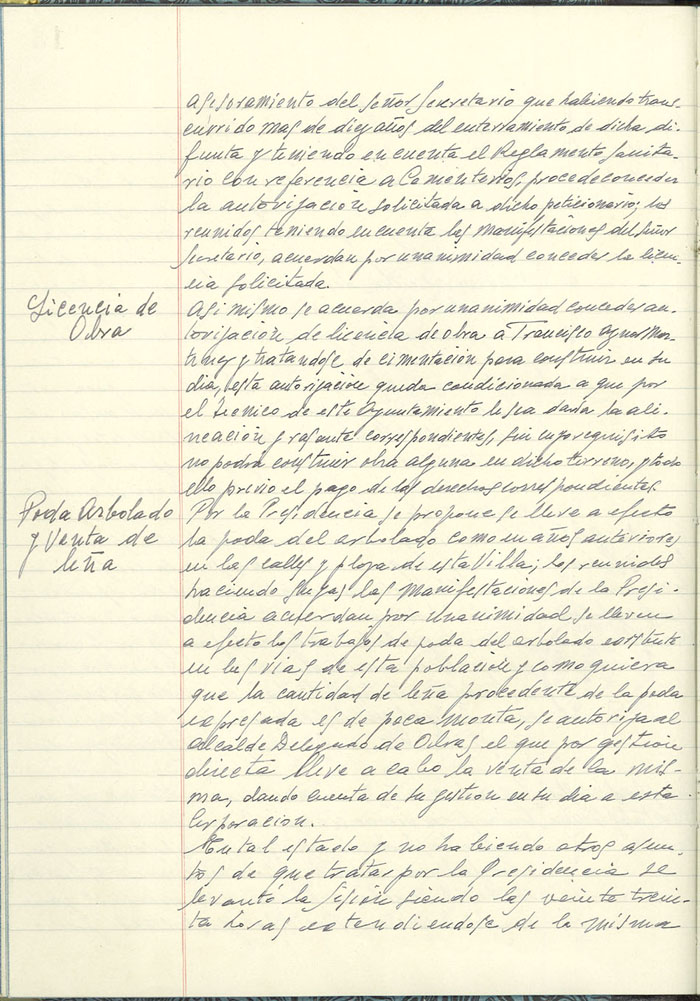 asesoramiento del señor Secretario que habiendo trans-
currido mas de diez años del enterramiento de dicha di-
funta y teniendo en cuenta el Reglamento Sanita-
rio con referencia a Cementerios, procede conceder
la autorización solicitada a dicho peticionario; los
reunidos teniendo en cuenta las manifestaciones del señor
Secretario, acuerdan por unanimidad conceder la licen-
cia solicitada.
Licencia de
Obra
Asi mismo se acuerda por unanimidad conceder au-
torización de licencia de obra a Francisco
y tratandose de cimentación para construir en su
dia, esta autorización queda condicionada a que por
el tecnico de este Ayuntamiento le sea dada la ali-
neación y rasante correspondientes, sin cuyo requisito
no podra construir obra alguna en dicho terreno, y todo
ello previo el pago de los derechos correspondientes.
Poda Arbolado
y Venta de
leña
Por la Presidencia se propone se lleve a efecto
la poda del arbolado como en años anteriores
en las calles y plaza de esta Villa; los reunidos
haciendo suyas las manifestaciones de la Presi-
dencia acuerdan por unanimidad se lleven
a efecto los trabajos de poda del arbolado existente
en las vías de esta población y como quiera
que la cantidad de leña procedente de la poda
expresada es de poca monta, se autoriza al
Alcalde Delegado de Obras el que por gestion
directa lleve a cabo la venta de la mis-
ma, dando cuenta de su gestion en su dia a esta
Corporacion.
En tal estado y no habiendo otros asun-
tos de que tratar por la Presidencia se
levantó la sesión siendo las veinte trein-
ta horas extendiendose de la misma